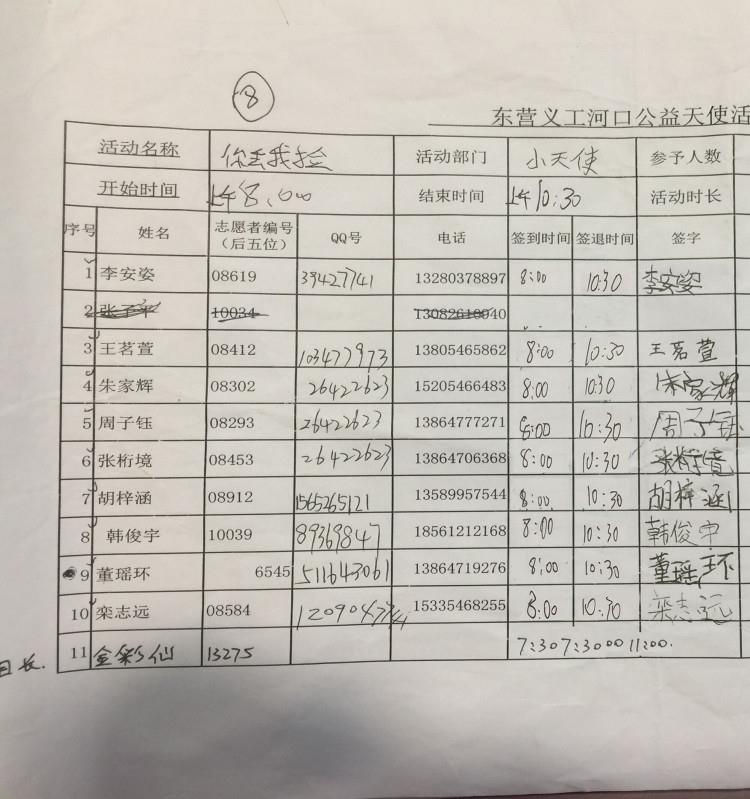 8
东营义工河口公益天使活
活动名称 你丢我捡 活动部门 小天使 参予人数
开始时间 上午8:00 结束时间 上午10:30 活动时长
序号 姓名 志愿者编号（后五位） QQ号 电话 签到时间 签退时间 签字
1 李安姿 08619 39427741 13280378897 8:00 10:30 李安姿
2 10034
3 王茗萱 08412 103477973 13805465862 8:00 10:30 王茗萱
4 朱家辉 08302 26422623 15205466483 8:00 10:30 朱家辉
5 周子钰 08293 26422623 13864777271 8:00 10:30 周子钰
6 张桁境 08453 26422623 13864706368 8:00 10:30 张桁境
7 胡梓涵 08912 1565265121 13589957544 8:00 10:30 胡梓涵
8 韩俊宇 10039 89369847 18561212168 8:00 10:30 韩俊宇
9 董瑶环 6545 511643061 13864719276 8:00 10:30 董瑶环
10 栾志远 08584 15335468255 8:00 10:30 栾志远
11 金彩仙 13275 7:30 7:30 00 11:00.